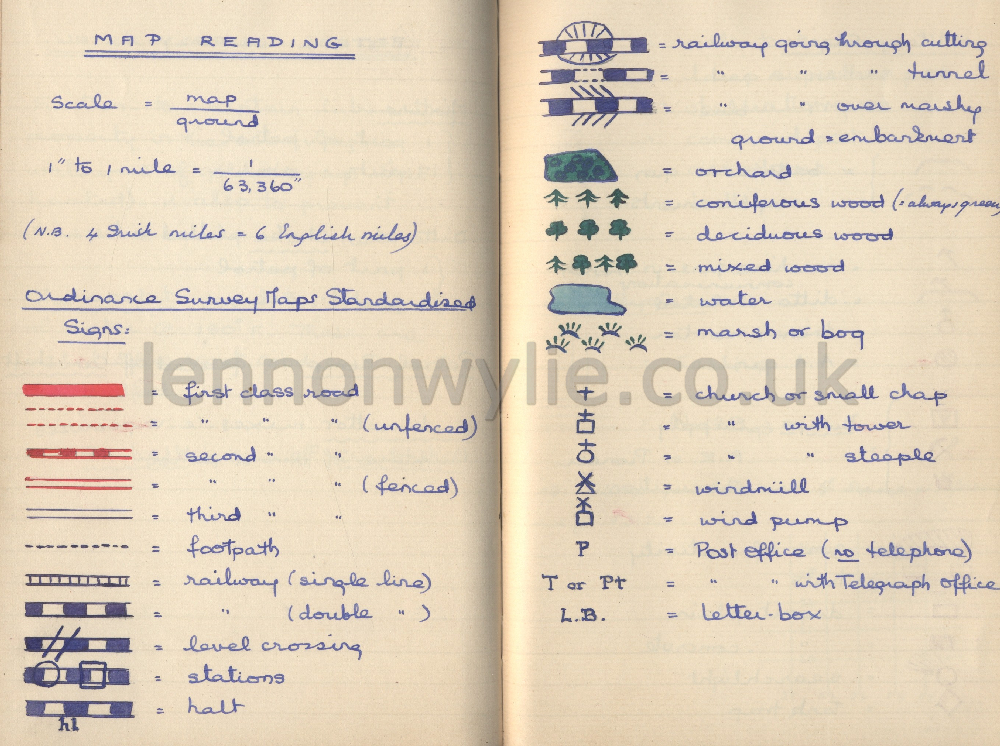 MAP READING
Scale = map
ground
1" to 1 mile = 1
63,360"
(N.B. 4 Irish miles = 6 English miles)
Ordinance Survey Maps Standardized
Signs:
= first class road
= " " " (unfenced)
= second " "
= " " " (fenced)
= third " "
= footpath
= railway (single line)
= " (double " )
= level crossing
= stations
= halt
hl
= railway going through cutting
= " " " tunnel
= " " over marshy
ground = embankment
= orchard
= coniferous wood (=always green
= deciduous wood
= mixed wood
= water
= marsh or bog
= church or small chap
= " with tower
= " " steeple
= windmill
= wind pump
P = Post office (no telephone)
T or Pt = " " with Telegraph office
L.B. = letter-box
lennonwylie.co.uk